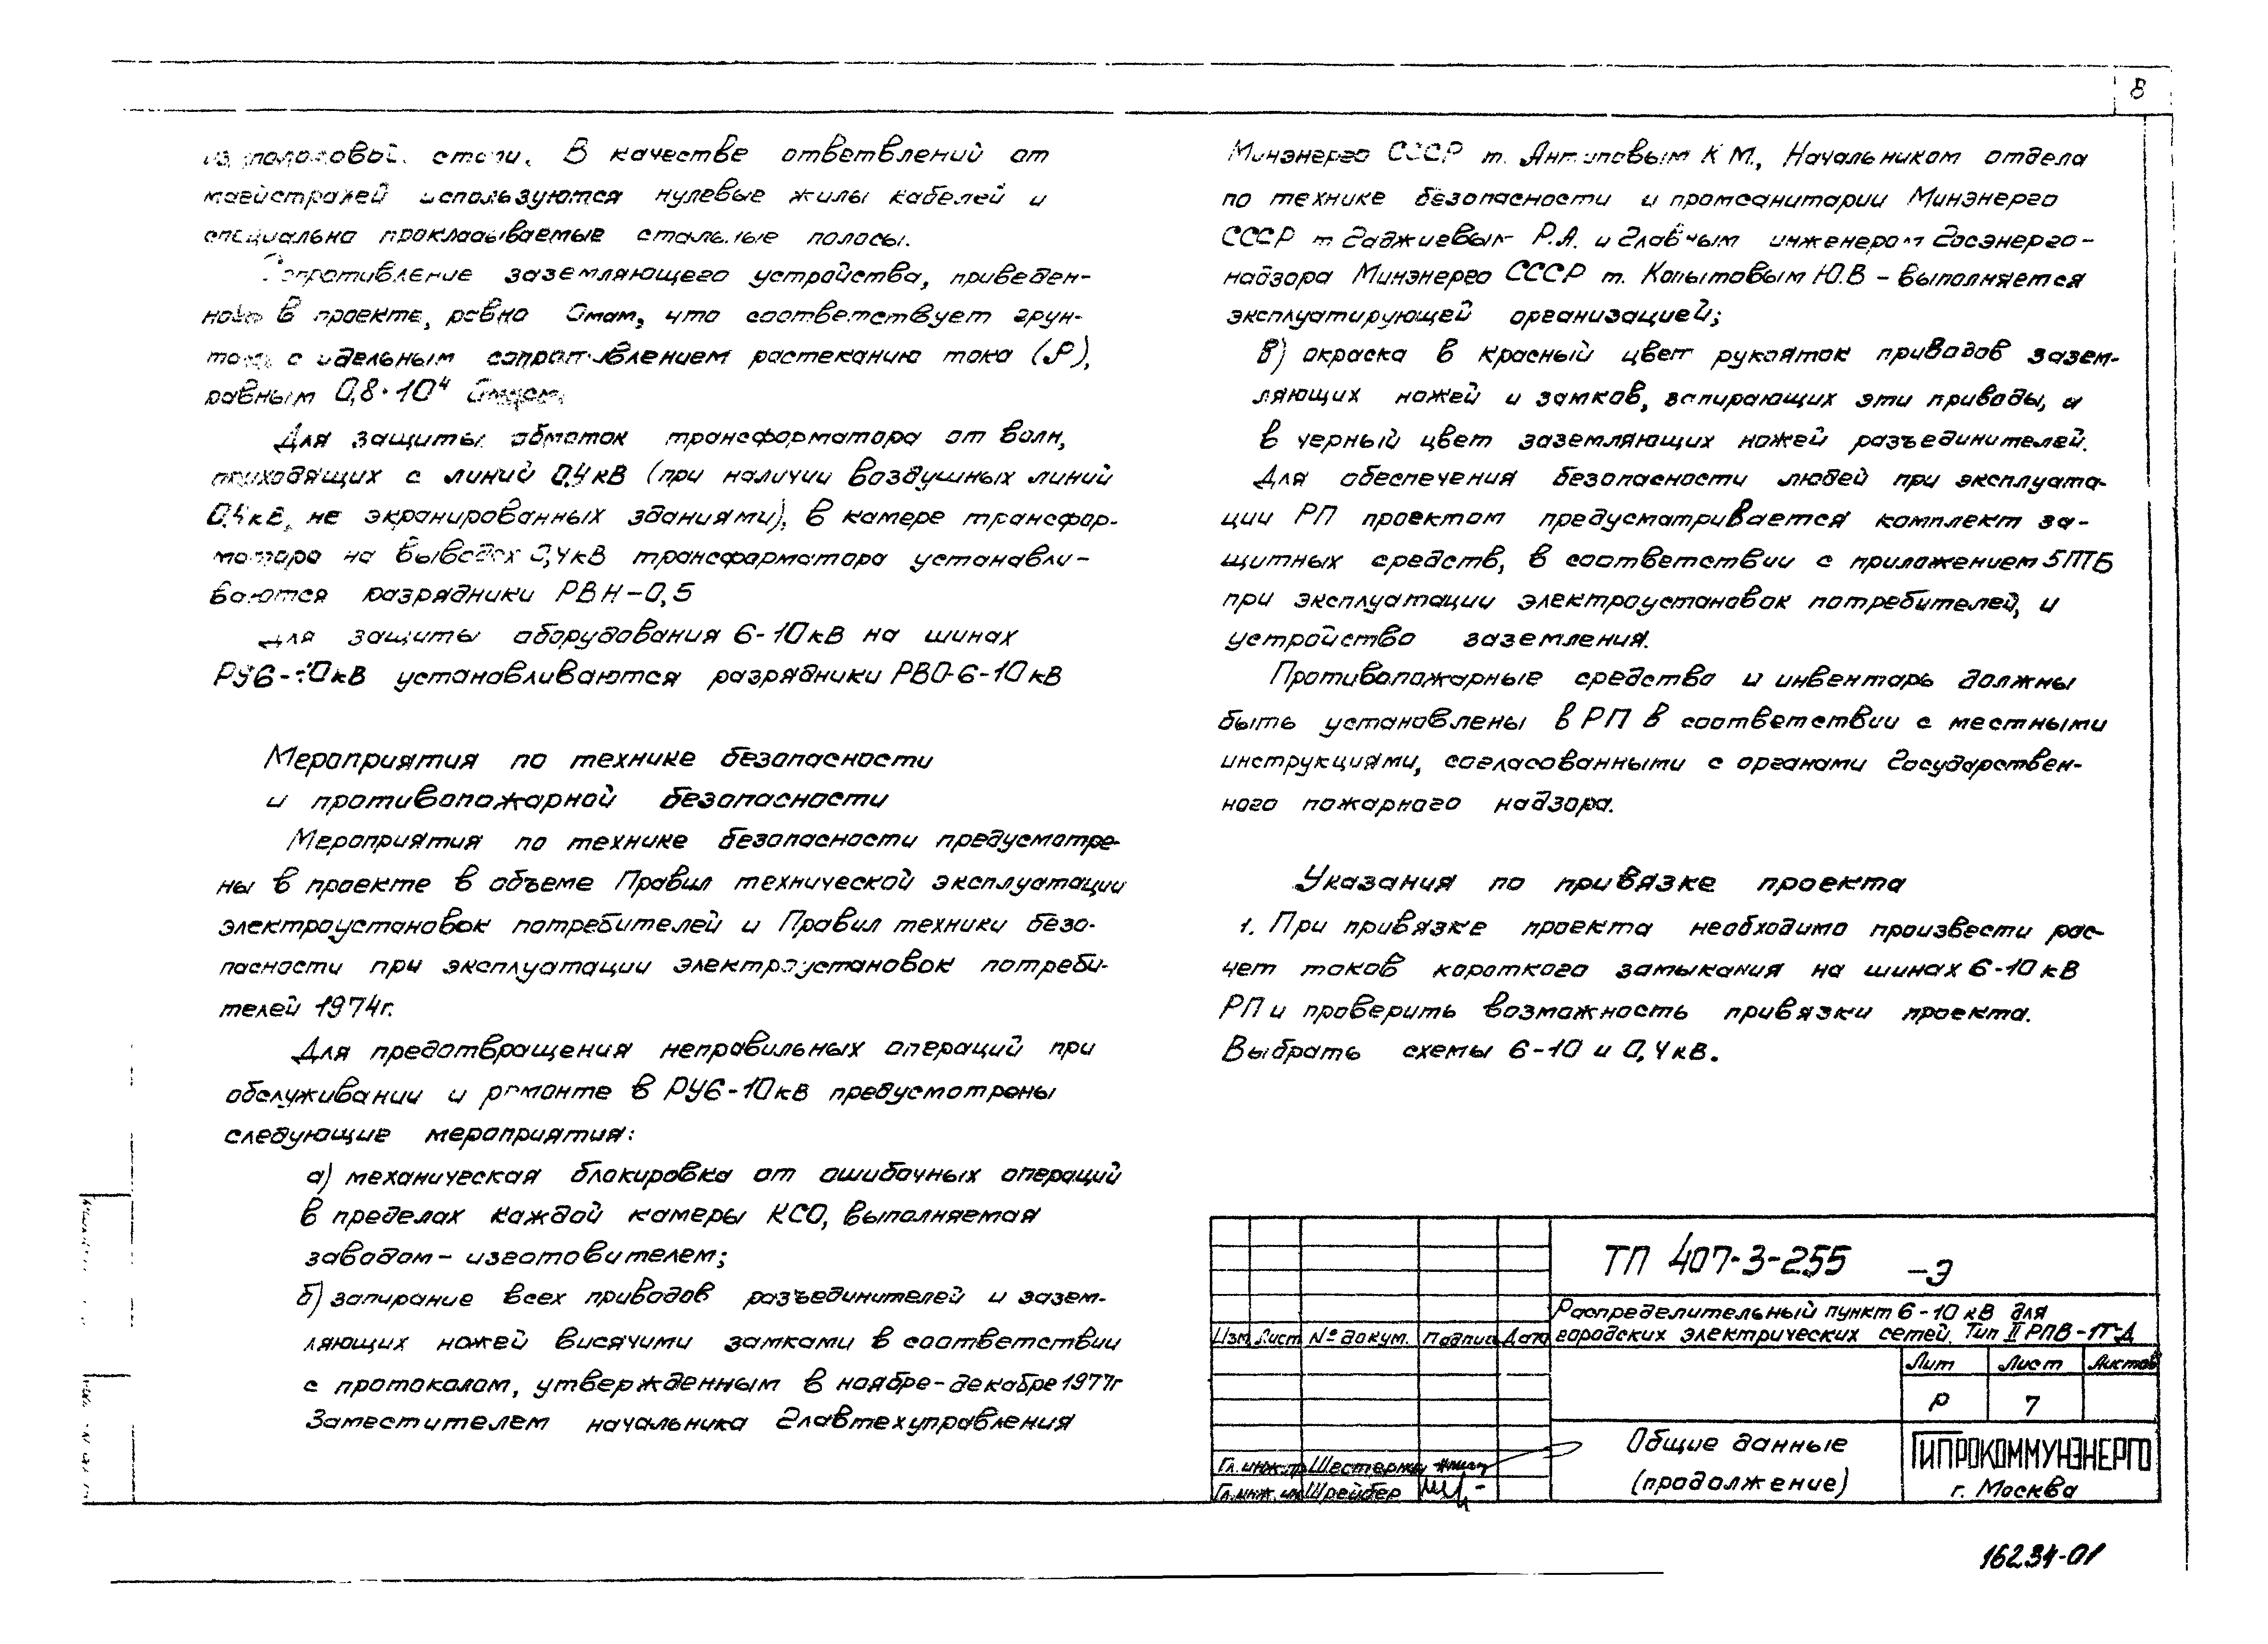 8
полосовой стали. В качестве ответвлений от
магистралей используются нулевые жилы кабелей и
специально прокладываемые стальные полосы.
Сопротивление заземляющего устройства, приведен-
ного в проекте, равно Омам, что соответствует грун-
там, с удельным сопротивлением растеканию тока (ρ),
равным 0,8·10⁴
Для защиты обмоток трансформатора от волн,
приходящих с линий 0,4кВ (при наличии воздушных линий
0,4кВ, не экранированных зданиями), в камере трансфор-
матора на выводах 0,4кВ трансформатора устанавли-
ваются разрядники РВН-0,5
Для защиты оборудования 6-10кВ на шинах
РУ6-10кВ устанавливаются разрядники РВО-6-10кВ
Мероприятия по технике безопасности
и противопожарной безопасности
Мероприятия по технике безопасности предусмотре-
ны в проекте в объеме Правил технической эксплуатации
электроустановок потребителей и Правил техники безо-
пасности при эксплуатации электроустановок потреби-
телей 1974г.
Для предотвращения неправильных операций при
обслуживании и ремонте в РУ6-10кВ предусмотрены
следующие мероприятия:
а) механическая блокировка от ошибочных операций
в пределах каждой камеры КСО, выполняемая
заводом-изготовителем;
б) запирание всех приводов разъединителей и зазем-
ляющих ножей висячими замками в соответствии
с протоколом, утвержденным в ноябре-декабре 1977г
Заместителем начальника Главтехуправления
Минэнерго СССР т. Антиповым К М., Начальником отдела
по технике безопасности и промсанитарии Минэнерго
СССР т Гаджиевым Р.А. и Главным инженером Госэнерго-
надзора Минэнерго СССР т. Копытовым Ю.В - выполняется
эксплуатирующей организацией;
в) окраска в красный цвет рукояток приводов зазем-
ляющих ножей и замков, запирающих эти приводы, и
в черный цвет заземляющих ножей разъединителей.
Для обеспечения безопасности людей при эксплуата-
ции РП проектом предусматривается комплект за-
щитных средств, в соответствии с приложением 5ПТБ
при эксплуатации электроустановок потребителей, и
устройство заземления.
Противопожарные средства и инвентарь должны
быть установлены в РП в соответствии с местными
инструкциями, согласованными с органами Государствен-
ного пожарного надзора.
Указания по привязке проекта
1. При привязке проекта необходимо произвести рас-
чет токов короткого замыкания на шинах 6-10кВ
РП и проверить возможность привязки проекта.
Выбрать схемы 6-10 и 0,4кв.
ТП 407-3-255 -Э
Распределительный пункт 6-10 кВ для
городских электрических сетей. Тип II РПВ-1Т-Д
Изм Лист № докум. Подпись Дата
Лит Лист Листов
Р 7
Общие данные
(продолжение)
ГИПРОКОММУНЭНЕРГО
г. Москва
Гл.инж.пр Шестерни
Гл.инж.ин Шрейбер
16234-01